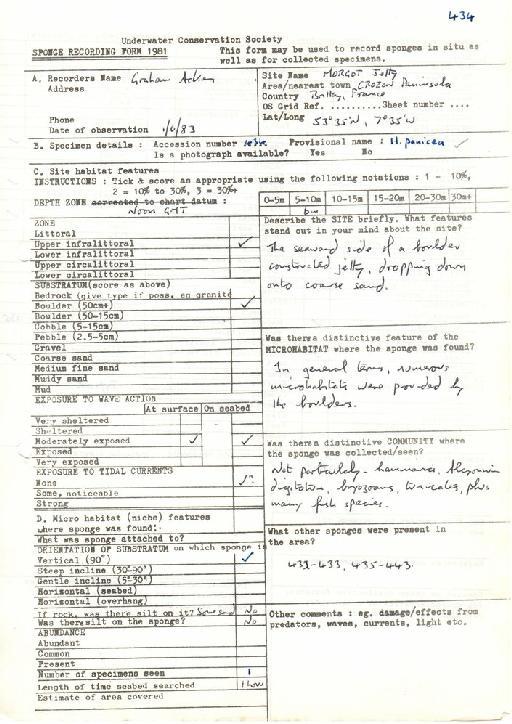 434
Underwater Conservation Society
SPONGE RECORDING FORM 1981
This form may be used to record sponges in situ as
well as for collected specimens.
A. Recorders Name Graham
Address
Phone
Date of observation 1/6/83
Site Name MORGAT Jetty
Area/nearest town CROZON Peninsula
Country France
OS Grid Ref. .......... Sheet number ....
Lat/Long
B. Specimen details : Accession number Provisional name : H. panicea
Is a photograph available? Yes No
C. Site habitat features
INSTRUCTIONS : Tick & score as appropriate using the following notations : 1 - 10%,
2 = 10% to 30%, 3 = 30%+
DEPTH ZONE corrected to chart datum : 0-5m 5-10m 10-15m 15-20m 20-30m 30m+
Noon GMT
ZONE
Littoral
Upper infralittoral ✓
Lower infralittoral
Upper circalittoral
Lower circalittoral
SUBSTRATUM(score as above)
Bedrock (give type if poss. eg granite
Boulder (50cm+) ✓
Boulder (50-15cm)
Cobble (5-15cm)
Pebble (2.5-5cm)
Gravel
Coarse sand
Medium fine sand
Muddy sand
Mud
EXPOSURE TO WAVE ACTION
At surface On seabed
Very sheltered
Sheltered
Moderately exposed ✓ ✓
Exposed
Very exposed
EXPOSURE TO TIDAL CURRENTS
None ✓?
Some, noticeable
Strong
D. Micro habitat (niche) features
where sponge was found:-
What was sponge attached to?
ORIENTATION OF SUBSTRATUM on which sponge is
Vertical (90°) ✓
Steep incline (30-90°)
Gentle incline (5-30°)
Horizontal (seabed)
Horizontal (overhang)
If rock, was there silt on it? No
Was there silt on the sponge? No
ABUNDANCE
Abundant
Common
Present
Number of specimens seen 1
Length of time seabed searched 1 hour
Estimate of area covered
Describe the SITE briefly. What features
stand out in your mind about the site?
The seaward side of a boulder
constructed jetty, dropping down
onto coarse sand.
Was there a distinctive feature of the
MICROHABITAT where the sponge was found?
In general terms, numerous
microhabitats were provided by
the boulders.
Was there a distinctive COMMUNITY where
the sponge was collected/seen?
Not particularly - laminaria, Alcyonium
digitatum, bryozoans, tunicates, plus
many fish species.
What other sponges were present in
the area?
431-433, 435-443.
Other comments : eg. damage/effects from
predators, waves, currents, light etc.